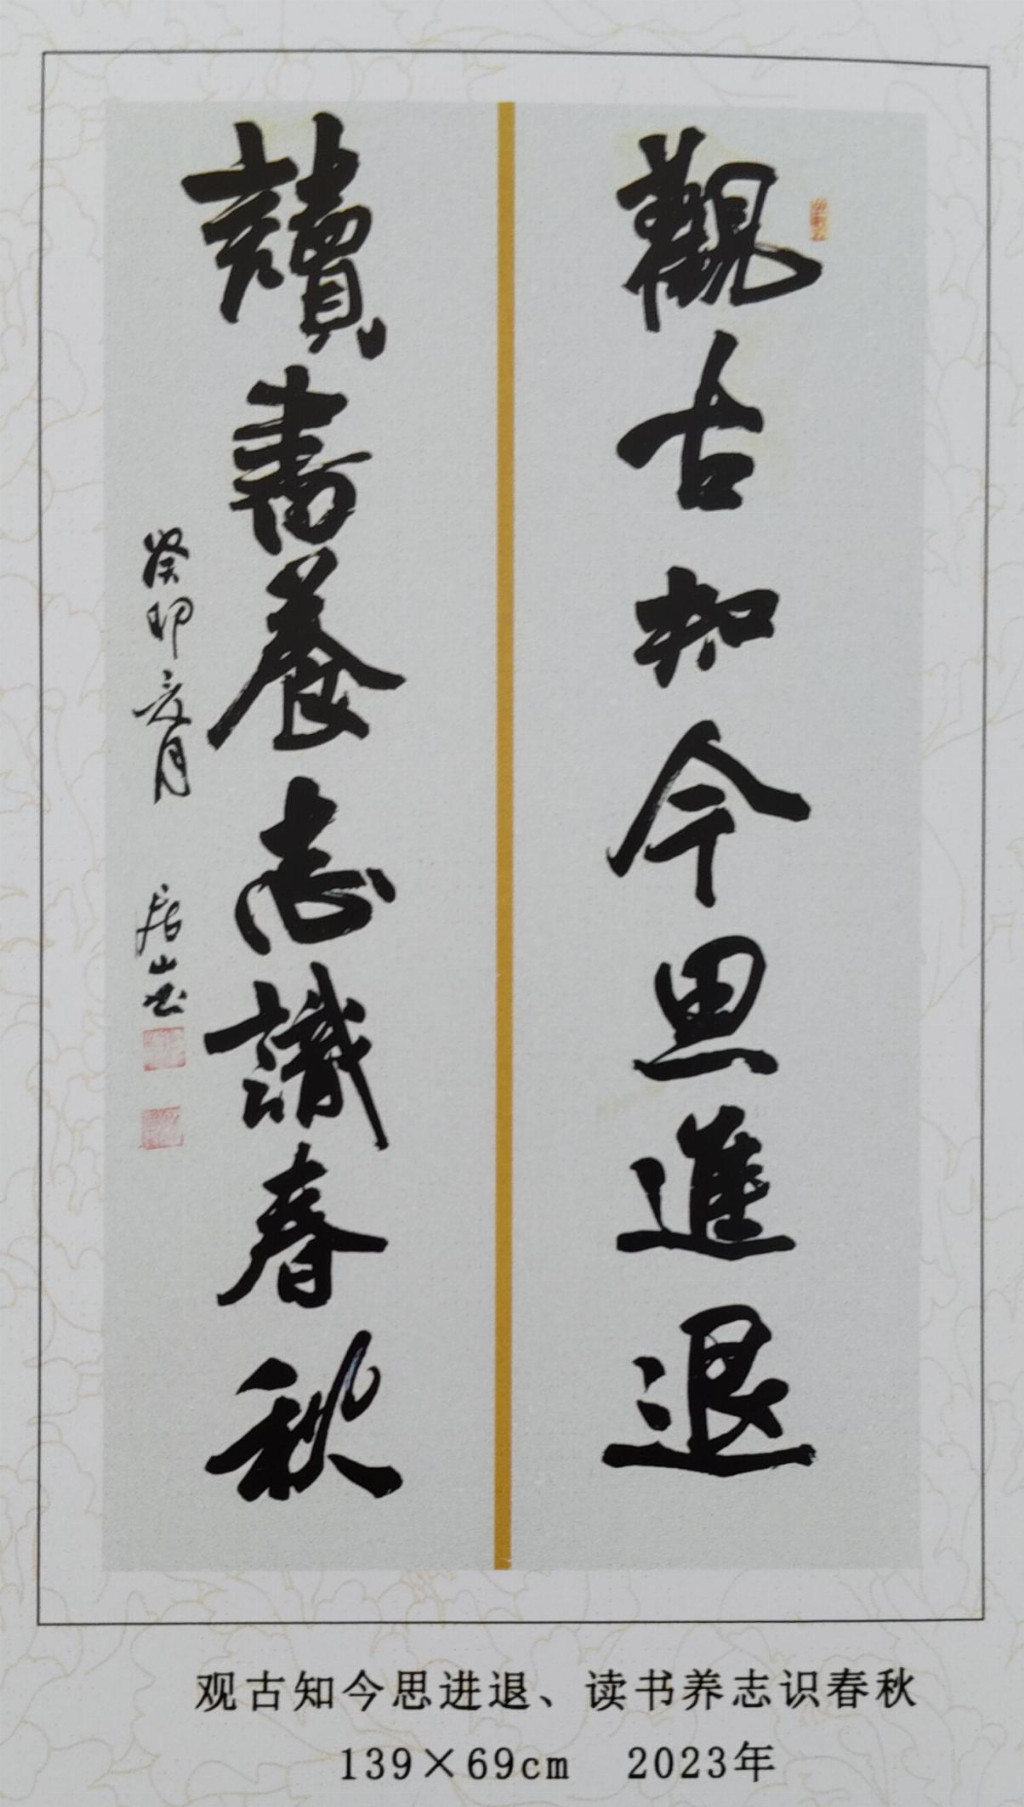 觀古知今思進退
讀書養志識春秋
癸卯之月
居山書
观古知今思进退、读书养志识春秋
139×69cm 2023年